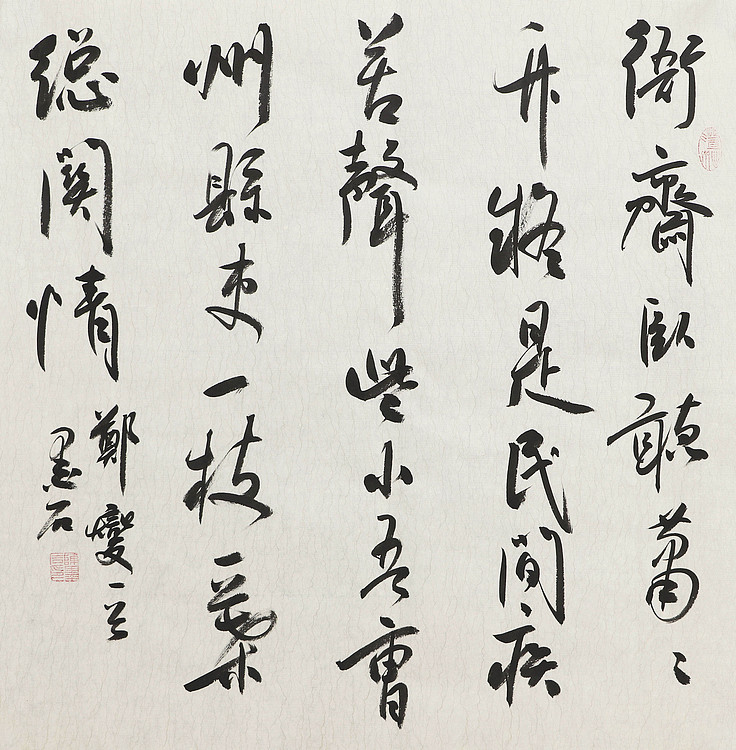 衙齋臥聽蕭〻
竹疑是民間疾
苦聲些小吾曹
州縣吏一枝一葉
總關情
鄭燮一
墨石